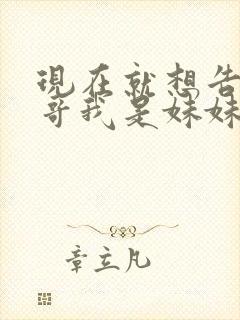 現在就想告
哥我是妹妹
章立凡